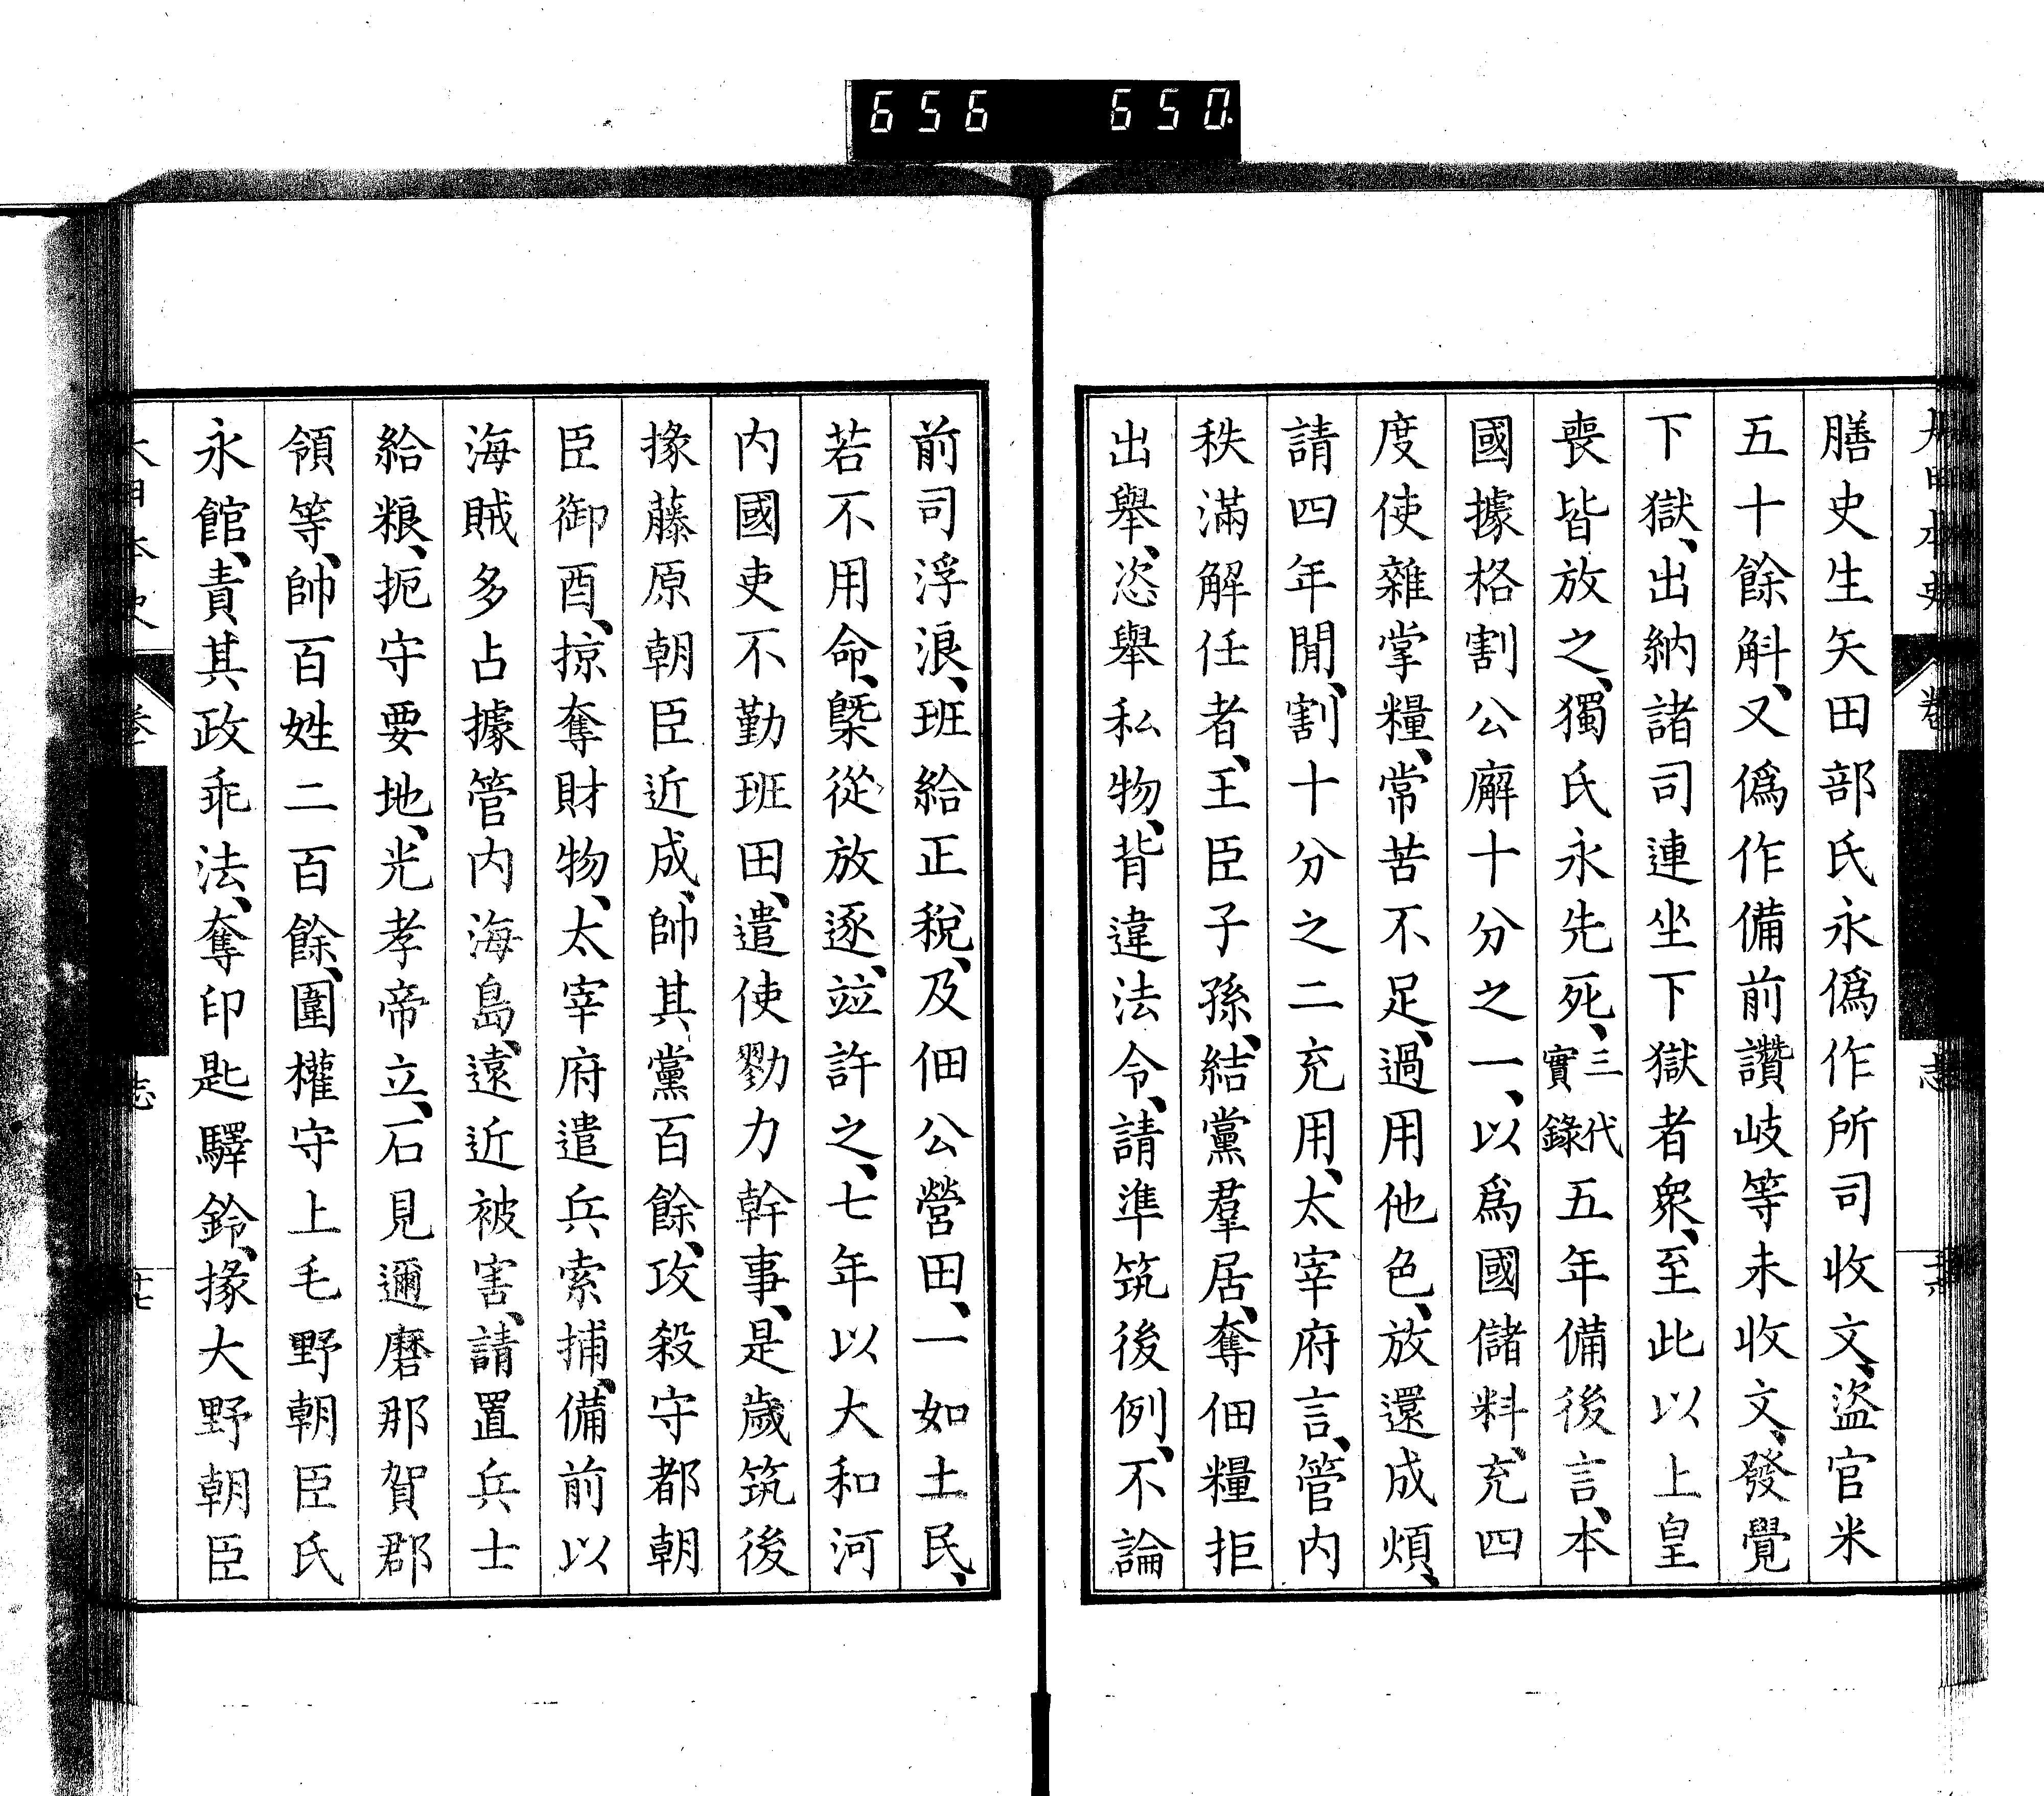 656 650
大日本史 卷 志
膳史生矢田部氏永僞作所司收文、盜官米
五十餘斛、又僞作備前讚岐等未收文、發覺
下獄、出納諸司連坐下獄者衆、至此以上皇
喪皆放之、獨氏永先死、三代實錄五年備後言、本
國據格割公廨十分之一、以爲國儲料、充四
度使雜掌糧、常苦不足、過用他色、放還成煩、
請四年閒、割十分之二充用、太宰府言、管内
秩滿解任者、王臣子孫、結黨羣居、奪佃糧拒
出擧、恣擧私物、背違法令、請準筑後例、不論
前司浮浪、班給正稅、及佃公營田、一如土民、
若不用命、槩從放逐、竝許之、七年以大和河
内國吏不勤班田、遣使勠力幹事、是歲筑後
掾藤原朝臣近成、帥其黨百餘、攻殺守都朝
臣御酉、掠奪財物、太宰府遣兵索捕、備前以
海賊多占據管内海島、遠近被害、請置兵士
給粮、扼守要地、光孝帝立、石見邇磨那賀郡
領等、帥百姓二百餘、圍權守上毛野朝臣氏
永館、責其政乖法、奪印匙驛鈴、掾大野朝臣
大日本史 卷 志 十七